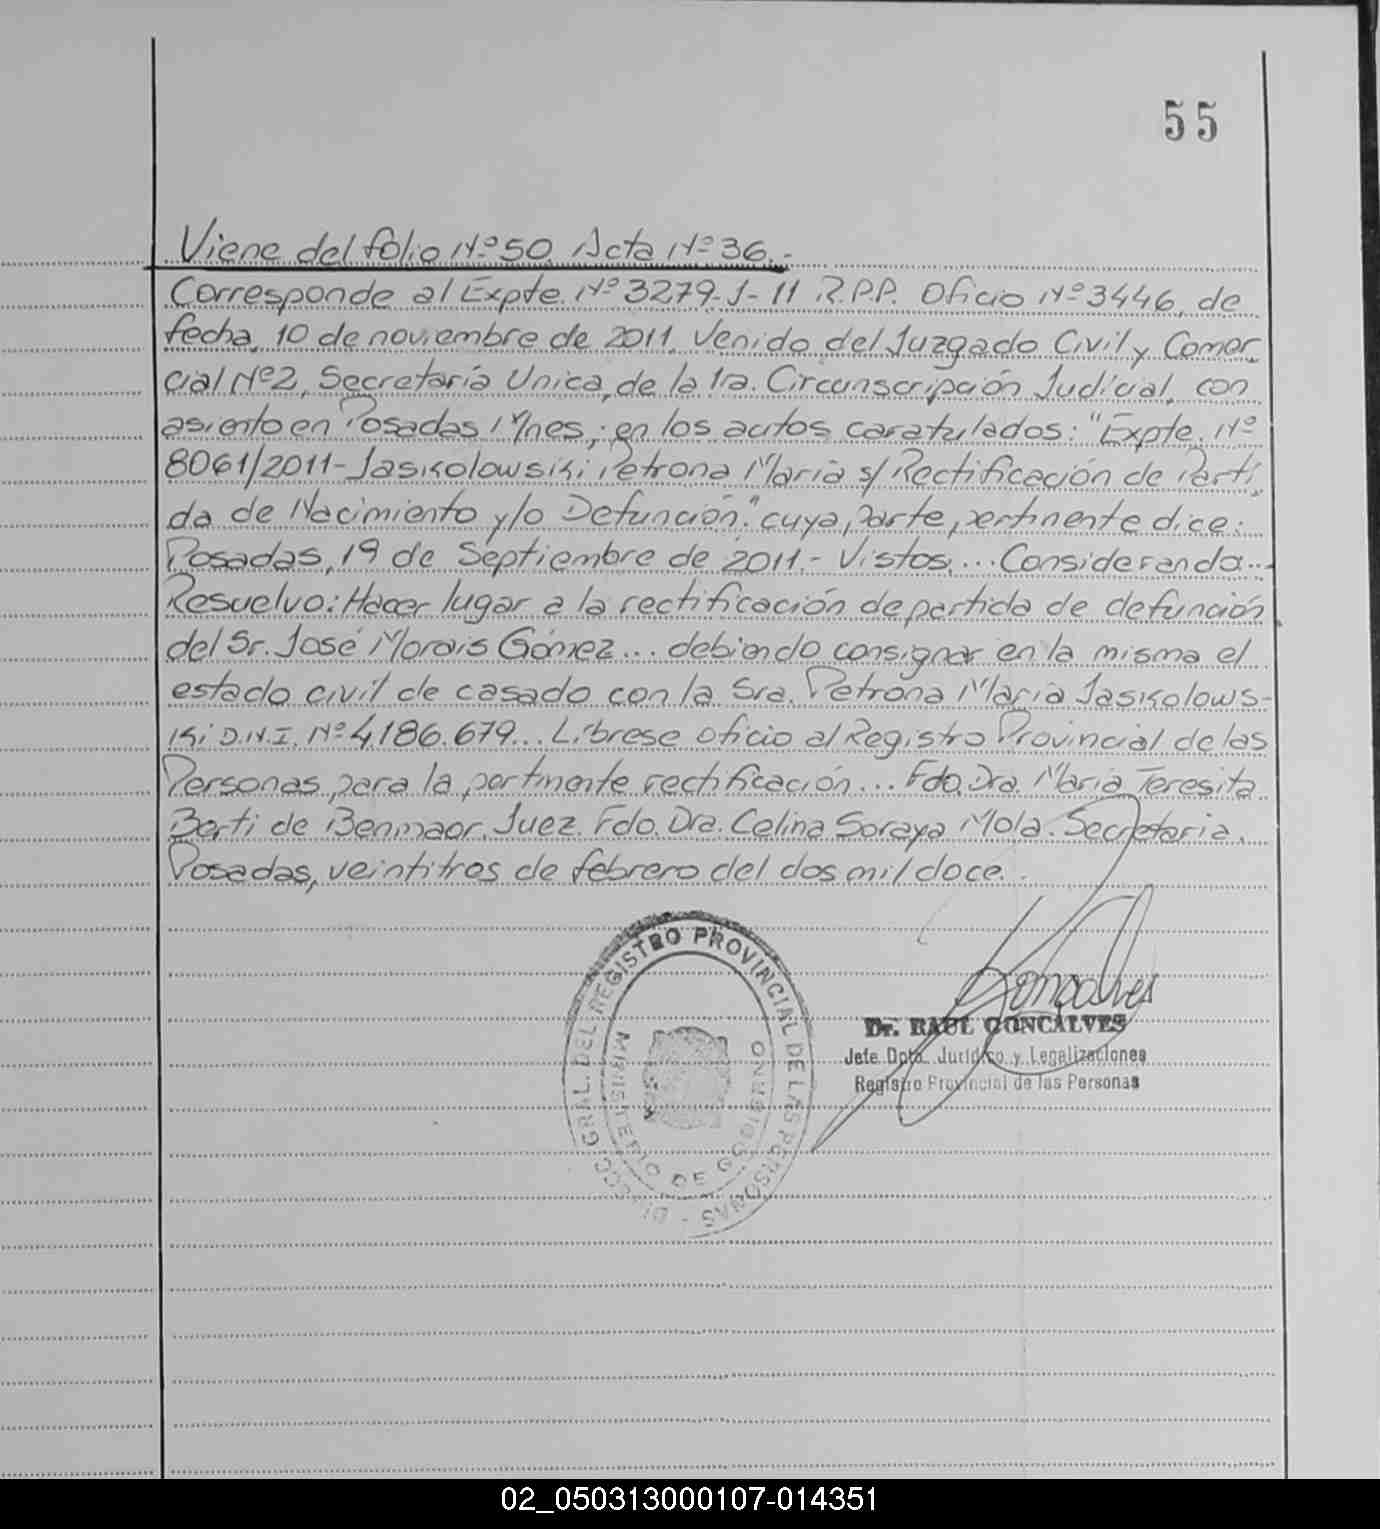 55
Viene del folio Nº 50. Acta Nº 36.-
Corresponde al Expte. Nº 3279-J-11 R.P.P. Oficio Nº 3446, de
fecha, 10 de noviembre de 2011. Venido del Juzgado Civil y Comer
cial Nº 2, Secretaría Unica, de la 1ra. Circunscripción Judicial, con
asiento en Posadas Mnes; en los autos caratulados: "Expte. Nº
8061/2011-Jasikolowski Petrona María s/ Rectificación de Parti
da de Nacimiento y/o Defunción." cuya parte pertinente dice:
Posadas, 19 de Septiembre de 2011.- Vistos... Considerando...
Resuelvo: Hacer lugar a la rectificación de partida de defunción
del Sr. José Morais Gómez... debiendo consignar en la misma el
estado civil de casado con la Sra. Petrona María Jasikolows-
ki D.N.I. Nº 4.186.679... Líbrese oficio al Registro Provincial de las
Personas para la pertinente rectificación... Fdo. Dra. María Teresita
Berti de Benmaor. Juez. Fdo. Dra. Celina Soraya Mola. Secretaria.
Posadas, veintitres de febrero del dos mil doce.
DIRECC. GRAL. DEL REGISTRO PROVINCIAL DE LAS PERSONAS -
MINISTERIO DE GOBIERNO
Goncalves
Dr. RAUL GONCALVES
Jefe Dpto. Jurídico y Legalizaciones
Registro Provincial de las Personas
02_050313000107-014351